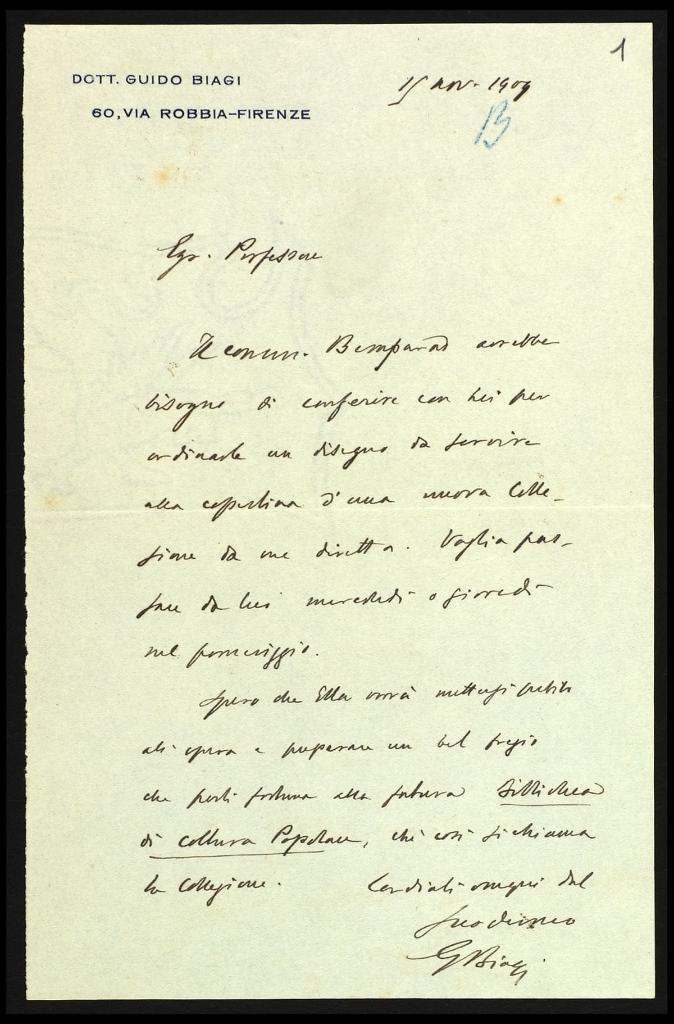 1
DOTT. GUIDO BIAGI
60, VIA ROBBIA-FIRENZE
15 nov. 1909
B
Egr. Professore
Il comm. Bemporad avrebbe
bisogno di conferire con Lei per
ordinarle un disegno da servire
alla copertina d'una nuova Colle-
zione da me diretta. Voglia pas-
sare da lui mercoledì o giovedì
nel pomeriggio.
Spero che Ella vorrà mettersi subito
all'opera e preparare un bel fregio
che porti fortuna alla futura Biblioteca
di coltura Popolare, chè così si chiama
la Collezione. Cordiali omaggi dal
suo devmo
GBiagi